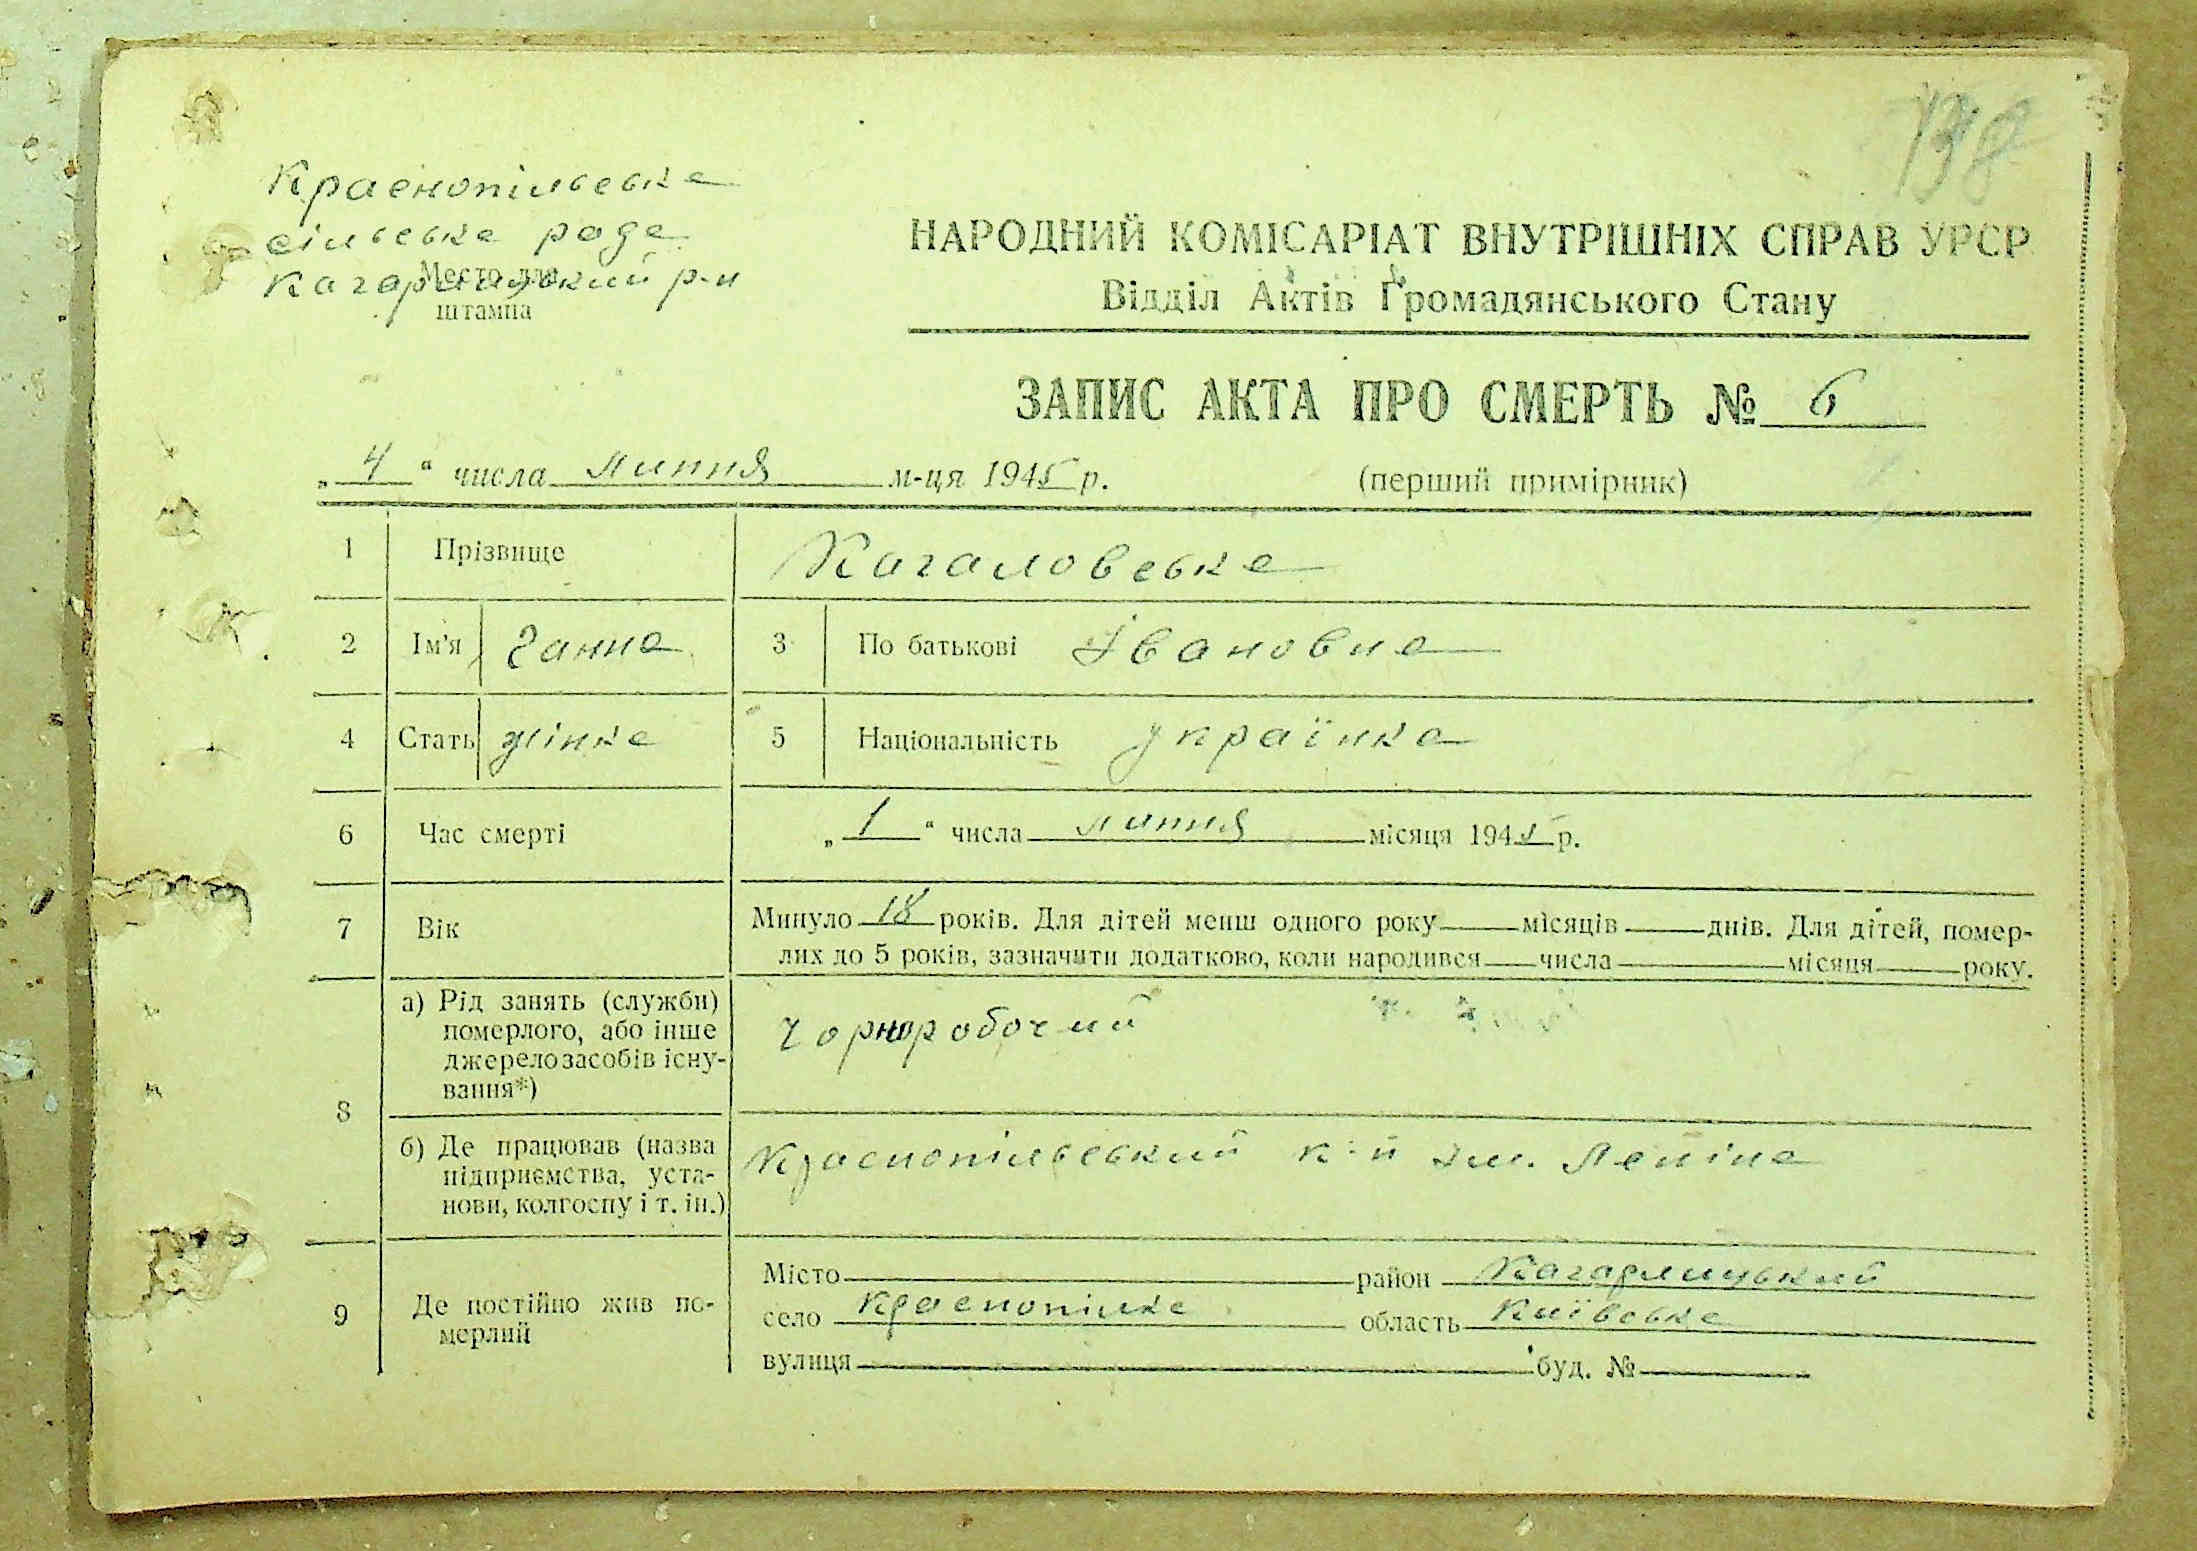 138
Краснопільська
сільська рада
Кагарлицький р-н
Место для
штампа
НАРОДНИЙ КОМІСАРІАТ ВНУТРІШНІХ СПРАВ УРСР
Відділ Актів Громадянського Стану
ЗАПИС АКТА ПРО СМЕРТЬ № 6
„ 4 “ числа липня м-ця 1945 р. (перший примірник)
1 Прізвище Кагаловська
2 Ім'я Ганна 3 По батькові Івановна
4 Стать жінка 5 Національність українка
6 Час смерті „ 1 “ числа липня місяця 1945 р.
7 Вік Минуло 18 років. Для дітей менш одного року місяців днів. Для дітей, помер-
лих до 5 років, зазначити додатково, коли народився числа місяця року.
8 а) Рід занять (служби)
померлого, або інше
джерело засобів існу-
вання*)
чорноробочий
б) Де працював (назва
підприємства, уста-
нови, колгоспу і т. ін.)
Краснопільський к-п ім. Леніна
9 Де постійно жив по-
мерлий
Місто район Кагарлицький
село Краснопілка область Київська
вулиця буд. №